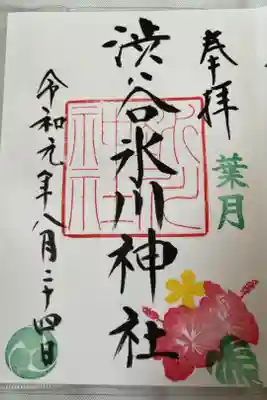 奉拝
葉月
渋谷氷川神社
令和元年八月二十四日